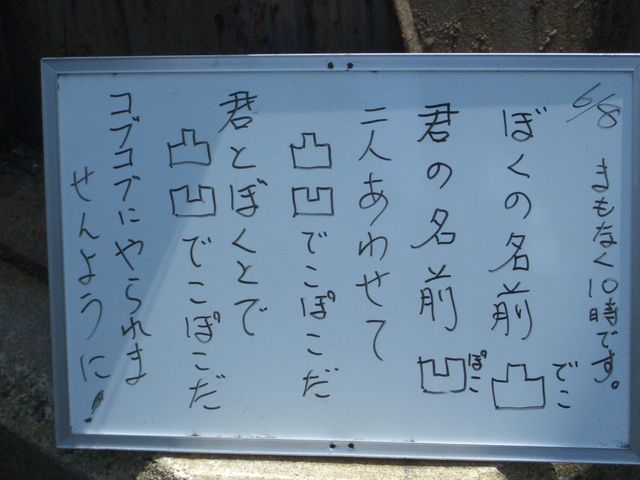 6/8 まもなく10時です。
ぼくの名前 凸 でこ
君の名前 凹 ぽこ
二人あわせて
凸凹でこぽこだ
君とぼくとで
凸凹でこぽこだ
コブコブにやられま
せんように!